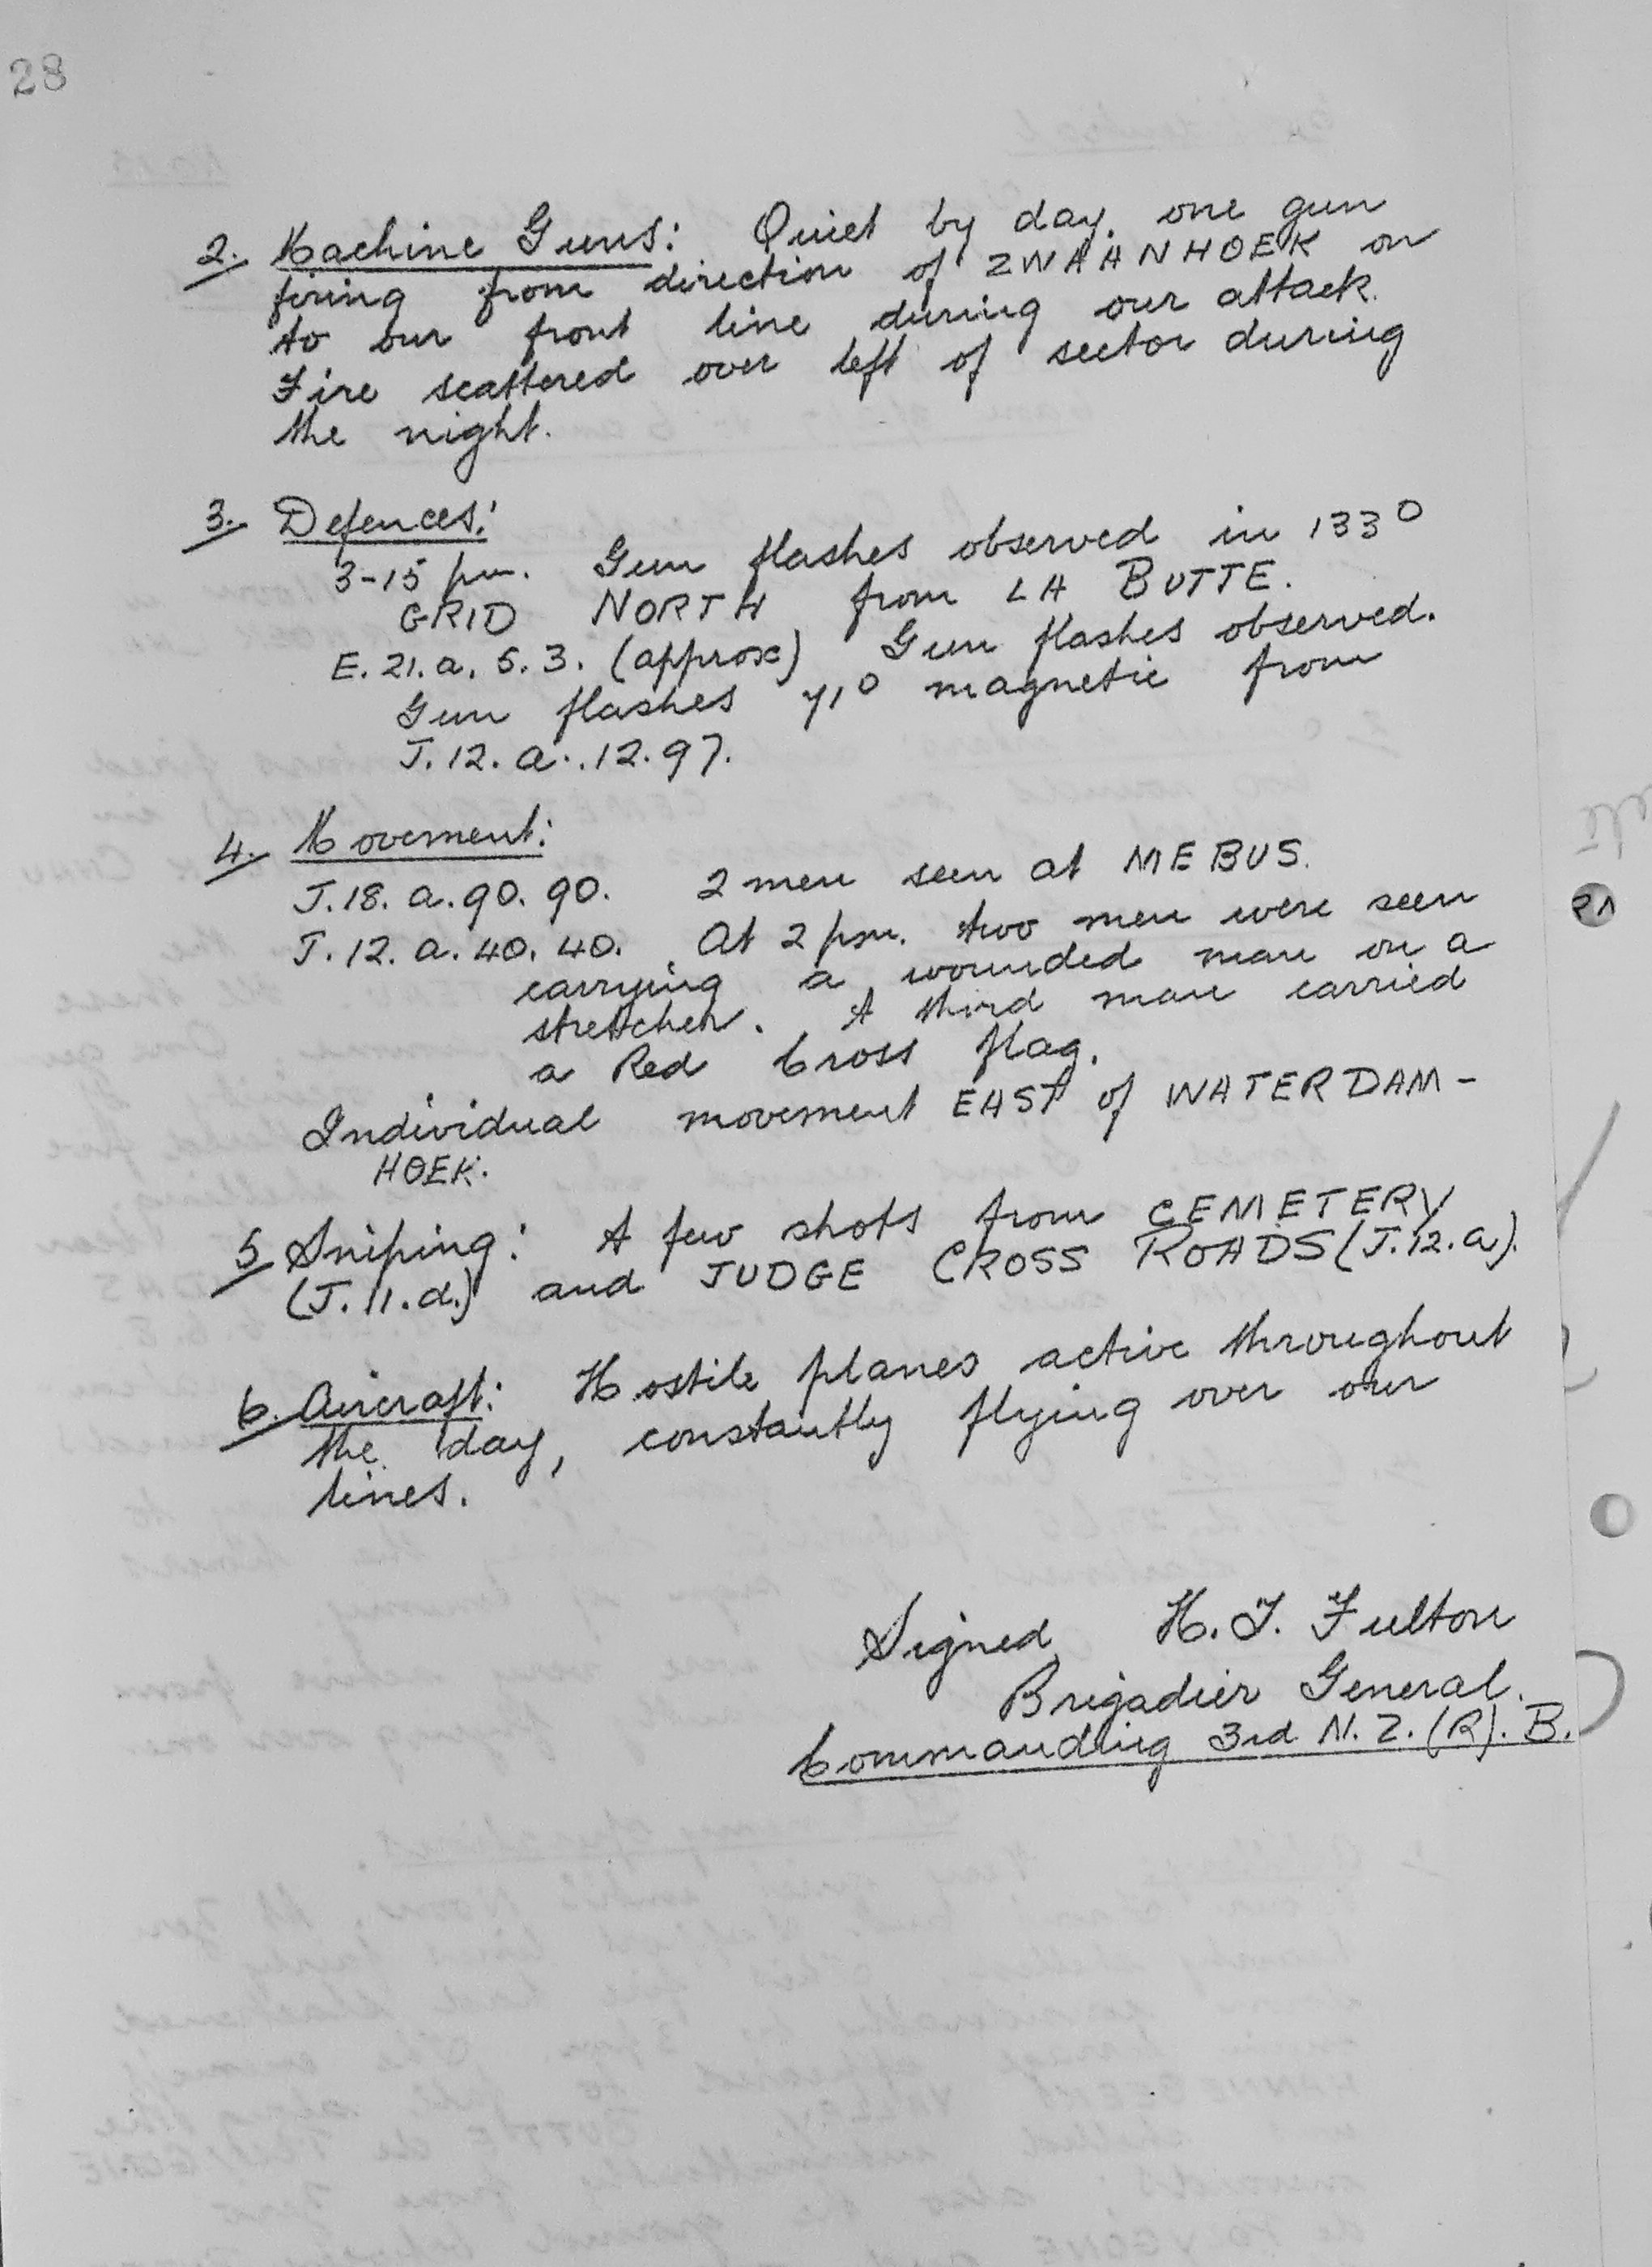 28
2. Machine Guns: Quiet by day, one gun
firing from direction of ZWAANHOEK on
to our front line during our attack.
Fire scattered over left of sector during
the night.
3. Defences:
3-15 pm. Gun flashes observed in 133°
GRID NORTH from LA BUTTE.
E. 21. a. 5. 3. (approx) Gun flashes observed.
Gun flashes 71° magnetic from
J. 12. a. . 12. 97.
4. Movement:
J. 18. a. 90. 90. 2 men seen at MEBUS.
J. 12. a. 40. 40. At 2 pm. two men were seen
carrying a wounded man on a
stretcher. A third man carried
a Red Cross flag.
Individual movement EAST of WATERDAM-
HOEK.
5. Sniping: A few shots from CEMETERY
(J. 11. d.) and JUDGE CROSS ROADS (J. 12. a).
6. Aircraft: Hostile planes active throughout
the day, constantly flying over our
lines.
Signed H. T. Fulton
Brigadier General.
Commanding 3rd N. Z. (R). B.